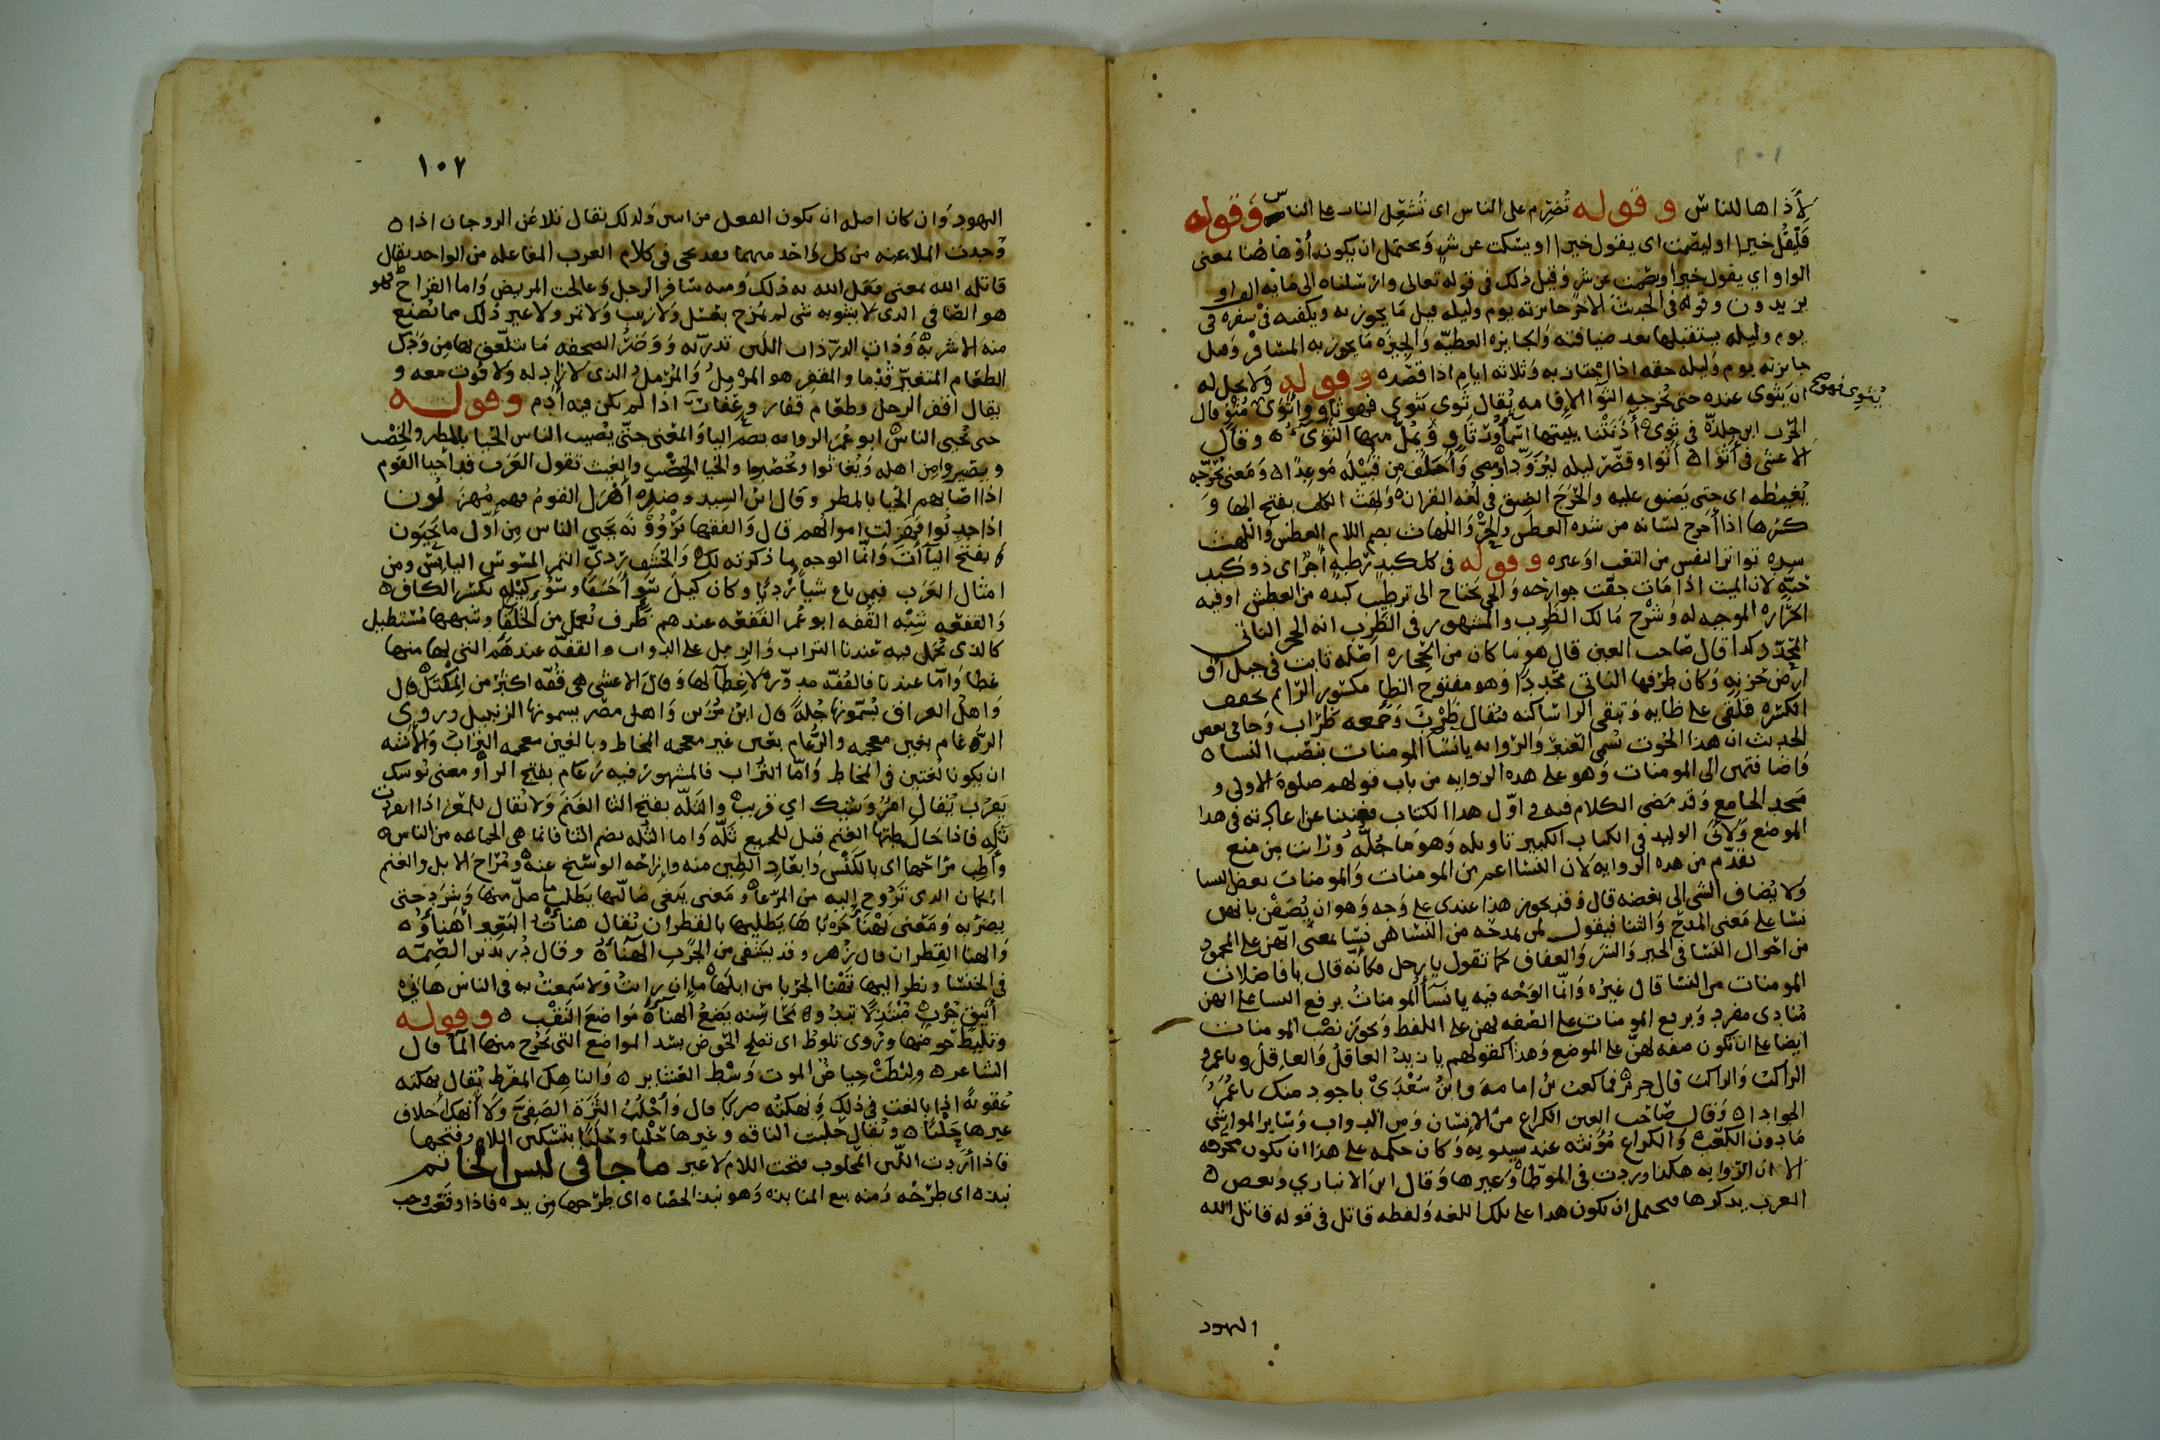 لأذاها للناس وقوله تضرم على الناس اى تشعل النار على الناس وقوله
فليقل خيرا او ليصمت اى يقول خيرا او يسكت عن شر ويحتمل ان يكون أو هاهنا بمعنى
الواو اي يقول خيرا ويصمت عن شر وقيل ذلك فى قوله تعالى وارسلناه الى مايه الف او
يزيدون وقوله فى الحديث الاخر جايزته يوم وليله قيل ما يجوز به ويكفيه فى سفره فى
يوم وليله يستقبلها بعد ضيافته والجايزه العطيه والجيزه ما يجوز به المسافر وقيل
جايزته يوم وليله حقه اذا اجتاز به وثلاثه ايام اذا قصده وقوله ولا يحل له
ان يثوى عنده حتى يحرجه الثوا الاقامه يقال ثوى يثوى فهو ثاو واثوى يثوى فهو مثو قال
الحرث ابن حلزة فى ثوى آذنتنا ببينها اسماء رب ثاو يمل منها الثواء وقال
الاعشى فى أثوا أثوا وقصر ليله ليزودا فمضى وأخلف من قتيله موعدا ومعنى يحرجه
يغيظه اى حتى يضيق عليه والحرج الضيق فى لغه القران ولهث الكلب بفتح الها و
كسرها اذا أخرج لسانه من شده العطش والحر واللهاث بضم اللام العطش واللهث
شده تواتر النفس من التعب او غيره وقوله فى كل كبد رطبه أجر اى ذو كبد
حيه لان الميت اذا مات جفت جوارحه والحي يحتاج الى ترطيب كبده من العطش او فيه
الحرارة الموجبه له وشرح مالك الظرب والمشهور فى الظرب انه الحجر الناتى
المحدد كذا قال صاحب العين قال هو ما كان من الحجاره اصله ثابت فى جبل أو
ارض حزنه وكان طرفها الناتى محددا وهو مفتوح الظا مكسور الرا ثم تخفف
الكسره فتلقى على ظايه وتبقى الرا ساكنه فيقال ظرب وجمعه ظراب وجا فى بعض
الحديث ان هذا الحوت تسمى العنبر والروايه يا نسا المومنات بنصب النسا
واضافتهن الى المومنات وهو على هذه الروايه من باب قولهم صلوة الاولى و
مسجد الجامع وقد مضى الكلام فيه فى اول هذا الكتاب فغنينا عن اعادته فى هذا
الموضع ولابى الوليد فى الكتاب الكبير تاويله وهو ما جمله ورات من منع
تقدم من هذه الروايه لان النسا اعم من المومنات والمومنات بعض النسا
ولا يضاف الشى الى بعضه قال وقد يجوز هذا عندى على وجه وهو ان يصفن بانهن
نسا على معنى المدح والثنا فيقول لمن يمدحه من النسا هى نسا بمعنى انهن على المحمود
من احوال النسا فى الخير والستر والعفاف كما تقول يا رجل فكانه قال يا فاضلات
المومنات من النسا قال غيره وانما الوجه فيه يا نسا المومنات برفع النسا على انهن
منادى مفرد ويرفع المومنات على الصفه لهن على اللفظ ويجوز نصب المومنات
ايضا على ان تكون صفه لهن على الموضع وهذا كقولهم يا زيد العاقل والعاقل ويا عمرو
الراكب والراكب قال جرير فما كعب بن امامه وابن سعدى باجود منك يا عمر
الجوادا وقال صاحب العين الكراع من الانسان ومن الدواب وساير المواشى
ما دون الكعب والكراع مؤنثه عند سيبويه وكان حكمه على هذا ان تكون محرقه
الا ان الروايه هكذا وردت فى الموطأ وغيرها وقال ابن الانباري وبعض
العرب يذكرها فيحتمل ان يكون هذا على تلك اللغه ولفظه قاتل فى قوله قاتل الله
اليهود
١٠٢
اليهود وان كان اصله ان يكون الفعل من اثنين ولذلك يقال تلاعن الزوجان اذا
وجدت الملاعنه من كل واحد منهما فقد تجى فى كلام العرب المفاعله من الواحد يقال
قاتله الله بمعنى فعل الله به ذلك ومنه سافر الرجل وعالجت المريض واما القراح فهو
هو الصافي الذى لا يشوبه شى لم يمزج بعسل ولا زبيب ولا تمر ولا غير ذلك مما تصنع
منه الاشربه وذات الدر ذات اللبن تدر به ووضر الصحفه ما يتلعق بها من ودك
الطعام المتغير قدما والمقفر هو المرمل والمرمل الذى لا زاد له ولا قوت معه و
يقال اقفر الرجل وطعام قفار وعفار اذا لم يكن فيه أدم وقوله
حتى يحيى الناس ابو عمر الروايه بضم اليا والمعنى حتى يصيب الناس الحيا بالمطر والخصب
ويصيروا من اهله ويغاثوا ويخصبوا والحيا الخصب والغيث تقول العرب قد احيا القوم
اذا اصابهم الحيا بالمطر وقال ابن السيد وضده أهزل القوم فهم مهزلون
اذا جدبوا فهزلت اموالهم قال والفقها يروونه يحيى الناس من أول ما يحيون
بفتح اليآآت وانما الوجه ما ذكرته لك والحشف ردى التمر المسوس اليابس ومن
امثال العرب فيمن باع شيا رديا وكان كيل سو أحشفا وسو كيله بكسر الكاف
والقفعه شبه القفه ابو عمر القفعه عندهم ظرف تعمل من الحلفا وشبهها مستطيل
كالذى تحمل فيه عندنا التراب والزبل على الدواب والقفه عندهم التى لها منها
غطا واما عندنا فالقفه مدوره لا غطا لها وقال الاعشى هى قفه اكبر من المكتل قال
واهل العراق يسمونها جله قال ابن مزين واهل مصر يسمونها الزنبيل وروى
الرغام بغين معجمه والرعام بعين غير معجمه المخاط وبالغين معجمه التراب والاشبه
ان يكونا لغتين فى المخاط واما التراب فالمشهور فيه رغام بفتح الرا ومعنى يوشك
يقرب يقال امر وشيك اي قريب والثله بفتح الثا الغنم ولا يقال للمعز اذا انفردت
ثله فاذا خالطتها الغنم قيل للجميع ثله واما الثله بضم الثا فانما هى الجماعه من الناس
وأطب مراحها اى بالكنس وابعاد الطين منه وازاحه الوسخ عنه ومراح الابل والغنم
المكان الذى تروح اليه من المرعا ومعنى يبغى ضالتها يطلب ما ضل منها وشرد حتى
يضر به ومعنى يهنأ جرباها يطليها بالقطران يقال هنأت البعير أهنأه
والهنا القطران قال زهير وقد يشفى من الجرب الهناء وقال دريد بن الصمه
فى الخنسا ونظر اليها تهنا الجربا من ابلها ما إن رايت ولا سمعت به فى الناس هانى
أينق جرب متبذلا تبدو محاسنه يضع الهناء مواضع النقب وقوله
وتليط حوضها ويروى تلوط اى تصلح الحوض بسد المواضع التى يخرج منها الما قال
الشاعر ولطت حياض الموت وسط العشاير والناهك المفرط يقال نهكته
عقوبة اذا بالغت فى ذلك ونهكته ضربا قال وأحلب الثره الصفي ولا أنهك أخلاف
غيرها حلبا ويقال حلبت الناقه وغيرها حلبا وحلبا بتسكين اللام وفتحها
فاذا اردت اللبن المحلوب فتحت اللام لا غير ما جا فى لبس الخاتم
نبذه اى طرحه ومنه بيع المنابذه وهو نبذ الحصاه اى طرحها من يده فاذا وقعت وجب